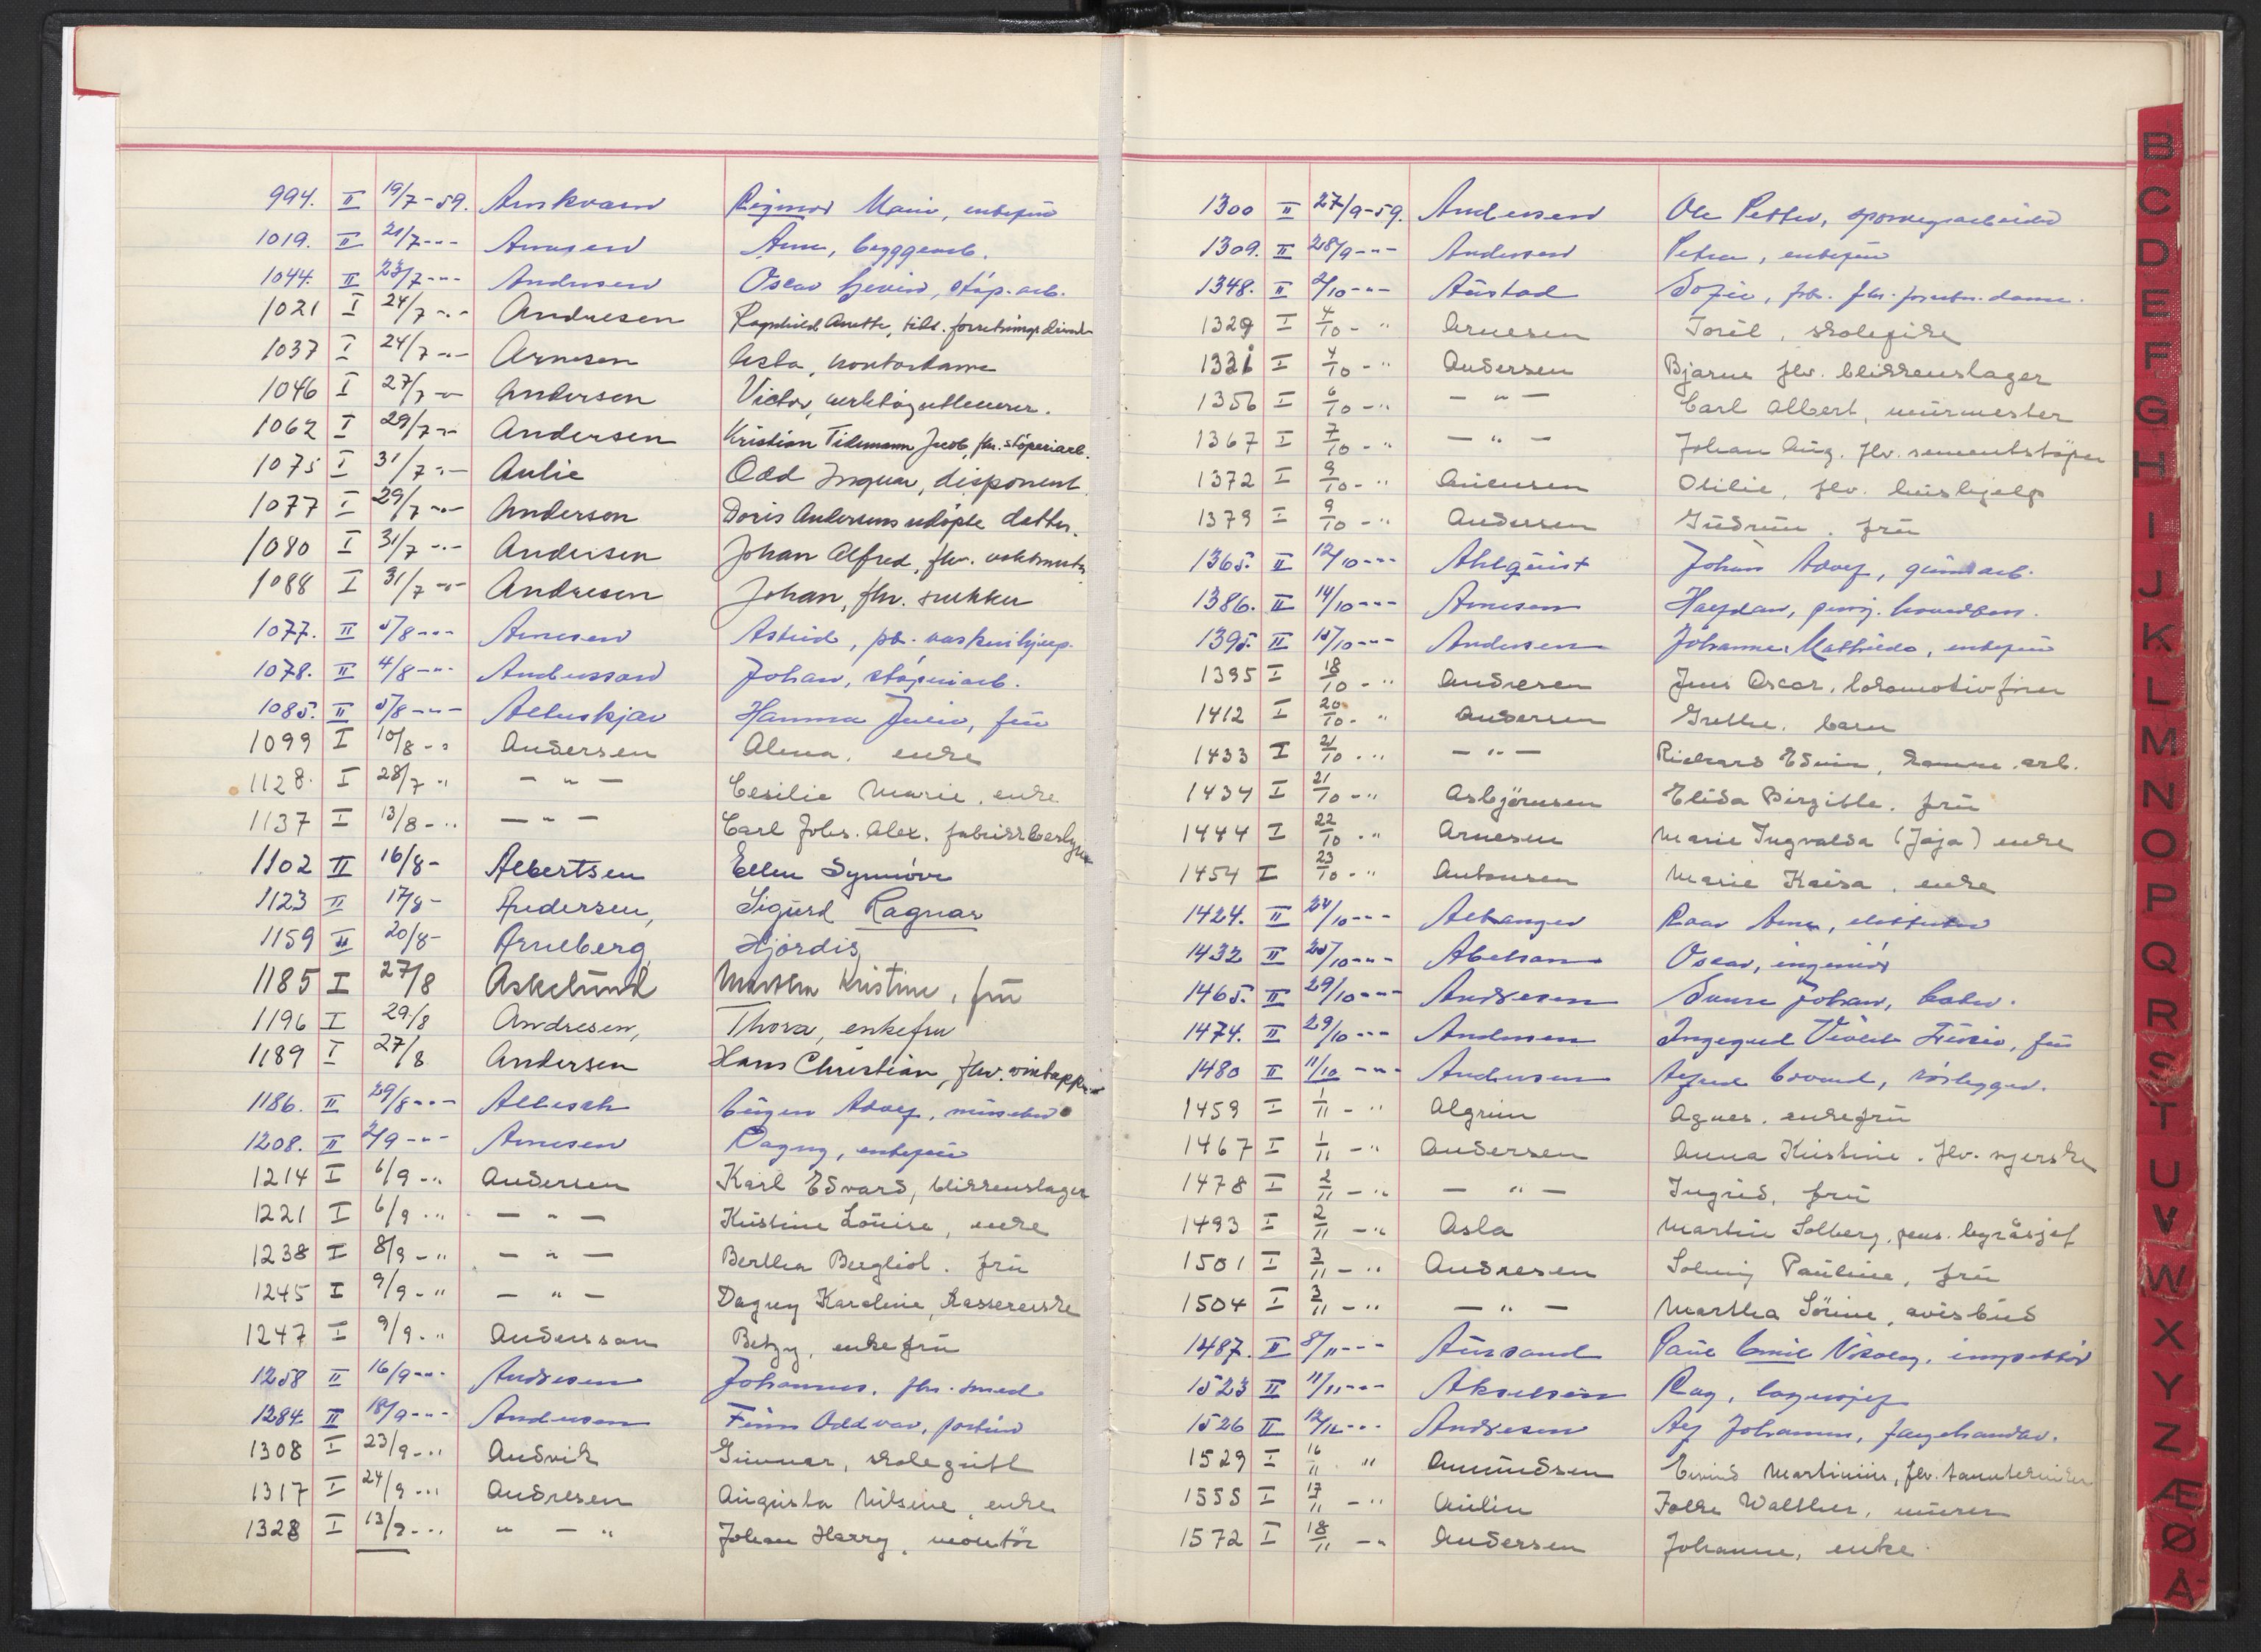 994. II 19/7-59. Arnkværn Rigmor Marie, enkefru
1019. II 21/7-"- Arnesen Arne, byggearb.
1044. II 23/7-"- Andersen Oscar, støp.arb.
1021 I 24/7-"- Andresen Ragnhild Anette, tidl.
1037 I 24/7-"- Arnesen Asta, kontordame
1046 I 27/7-"- Andersen Victor,
1062 I 29/7-"- Andersen Kristian Tidemann Jacob, fhv. støperiarb.
1075 I 31/7-"- Aulie Odd Ingvar, disponent
1077 I 29/7-"- Anderson Doris Andersons udøpte datter.
1080 I 31/7-"- Andersen Johan Alfred, fhv. vaktmester
1088 I 31/7-"- Andresen Johan, fhv. snekker
1077. II 5/8-"- Arnesen Astrid,
1078. II 4/8-"- Andersson Johan, støperiarb.
1085. II 5/8-"- Hanna Julie, fru
1099 I 10/8-" Andersen Alma, enke
1128. I 28/7 " - " - Cesilie Marie, enke
1137 I 13/8-" - " - Carl Johs. Alex.
1102 II 16/8- Albertsen Ellen Synnöve
1123 II 17/8- Andersen, Sigurd Ragnar
1159 II 20/8- Arneberg, Hjördis
1185 I 27/8 Askelund Martha Kristine, fru
1196 I 29/8 Andresen, Thora, enkefru
1189 I 27/8 Andersen Hans Christian, fhv. vintapper
1186. II 29/8-"- Albisch Eugen Adolf,
1208. II 2/9-"- Arnesen Dagny, enkefru
1214 I 6/9-" Andersen Karl Edvard, blikkenslager
1221 I 6/9-" - " - Kristine Louise, enke
1238 I 8/9-" - " - Bertha Bergliot. fru
1245 I 9/9-" - " - Dagny Karoline, kassererske
1247 I 9/9-" Andersson Betzy, enkefru
1258 II 16/9-"- Andresen Johannes, fhv. smed
1284. II 18/9-"- Andersen Finn Oddvar,
1308 I 23/9-" Andvik Gunnar, skolegutt
1317 I 24/9-" Andresen Augusta Nilsine, enke
1328 I 13/9-" " - " Johan Harry, montör
1300 II 27/9-59. Andersen Ole Petter, sporveisarbeider
1309. II 28/9-"- Andersen Petra, enkefru
1348. II 2/10-"- Austad Sofie,
1329 I 4/10-" Arnesen Toril, skolepike
1331 I 4/10-" Andersen Bjarne fhv. blikkenslager
1356 I 6/10-" - " - Carl Albert, murmester
1367 I 7/10-" - " - Johan Aug. fhv. sementstöper
1372 I 9/10-" Otilie, fhv. hushjelp
1379 I 9/10-" Andersen Gudrun. fru
1365. II 12/10-"- Ahlquist Johan Adolf,
1386. II 14/10-"- Arnesen Halfdan,
1395. II 15/10-"- Andersen Johanne Mathilde, enkefru
1395 I 18/10-" Andresen Jens Oscar, lokomotivförer
1412 I 20/10-" Andersen Grethe. barn
1433 I 21/10-" - " - Richard Edvin,
1434 I 21/10-" Asbjörnsen Elida Birgitte. fru
1444 I 22/10-" Arnesen Marie Ingvalda (Jaja) enke
1454 I 23/10-" Antonsen Marie Kaisa, enke
1424. II 24/10-"-
1432 II 25/10-"- Abelson Oscar, ingeniør
1465. II 29/10-"- Andresen Johan,
1474. II 29/10-"- Andersen Ingegerd
1480 II 11/10-"- Andersen rørlegger.
1459 I 1/11-" Algrim Agnes. enkefru
1467 I 1/11-" Andersen Anna Kristine. fhv. syerske
1478 I 2/11-" - " - Ingrid, fru
1493 I 2/11-" Asla Martin Solberg, pens. byråsjef
1501 I 3/11-" Andresen Solveig Pauline, fru
1504 I 3/11-" - " - Martha Sörine, avisbud
1487. II 8/11-"- Aursand Paul Emil Nikolay, inspektør
1523 II 11/11-"- Akselsen Dag, lagersjef
1526 II 12/11-"- Andresen Alf Johannes, fargehandler.
1529 I 16/11 " Amundsen Eivind Martinius, fhv. tanntekniker
1555 I 17/11-" Aulin Folke Walther, murer
1572 I 18/11-" Andersen Johanne, enke
B
C
D
E
F
G
H
I
J
K
L
M
N
O
P
Q
R
S
T
U
V
W
X
Y
Z
Æ
Ø
Å